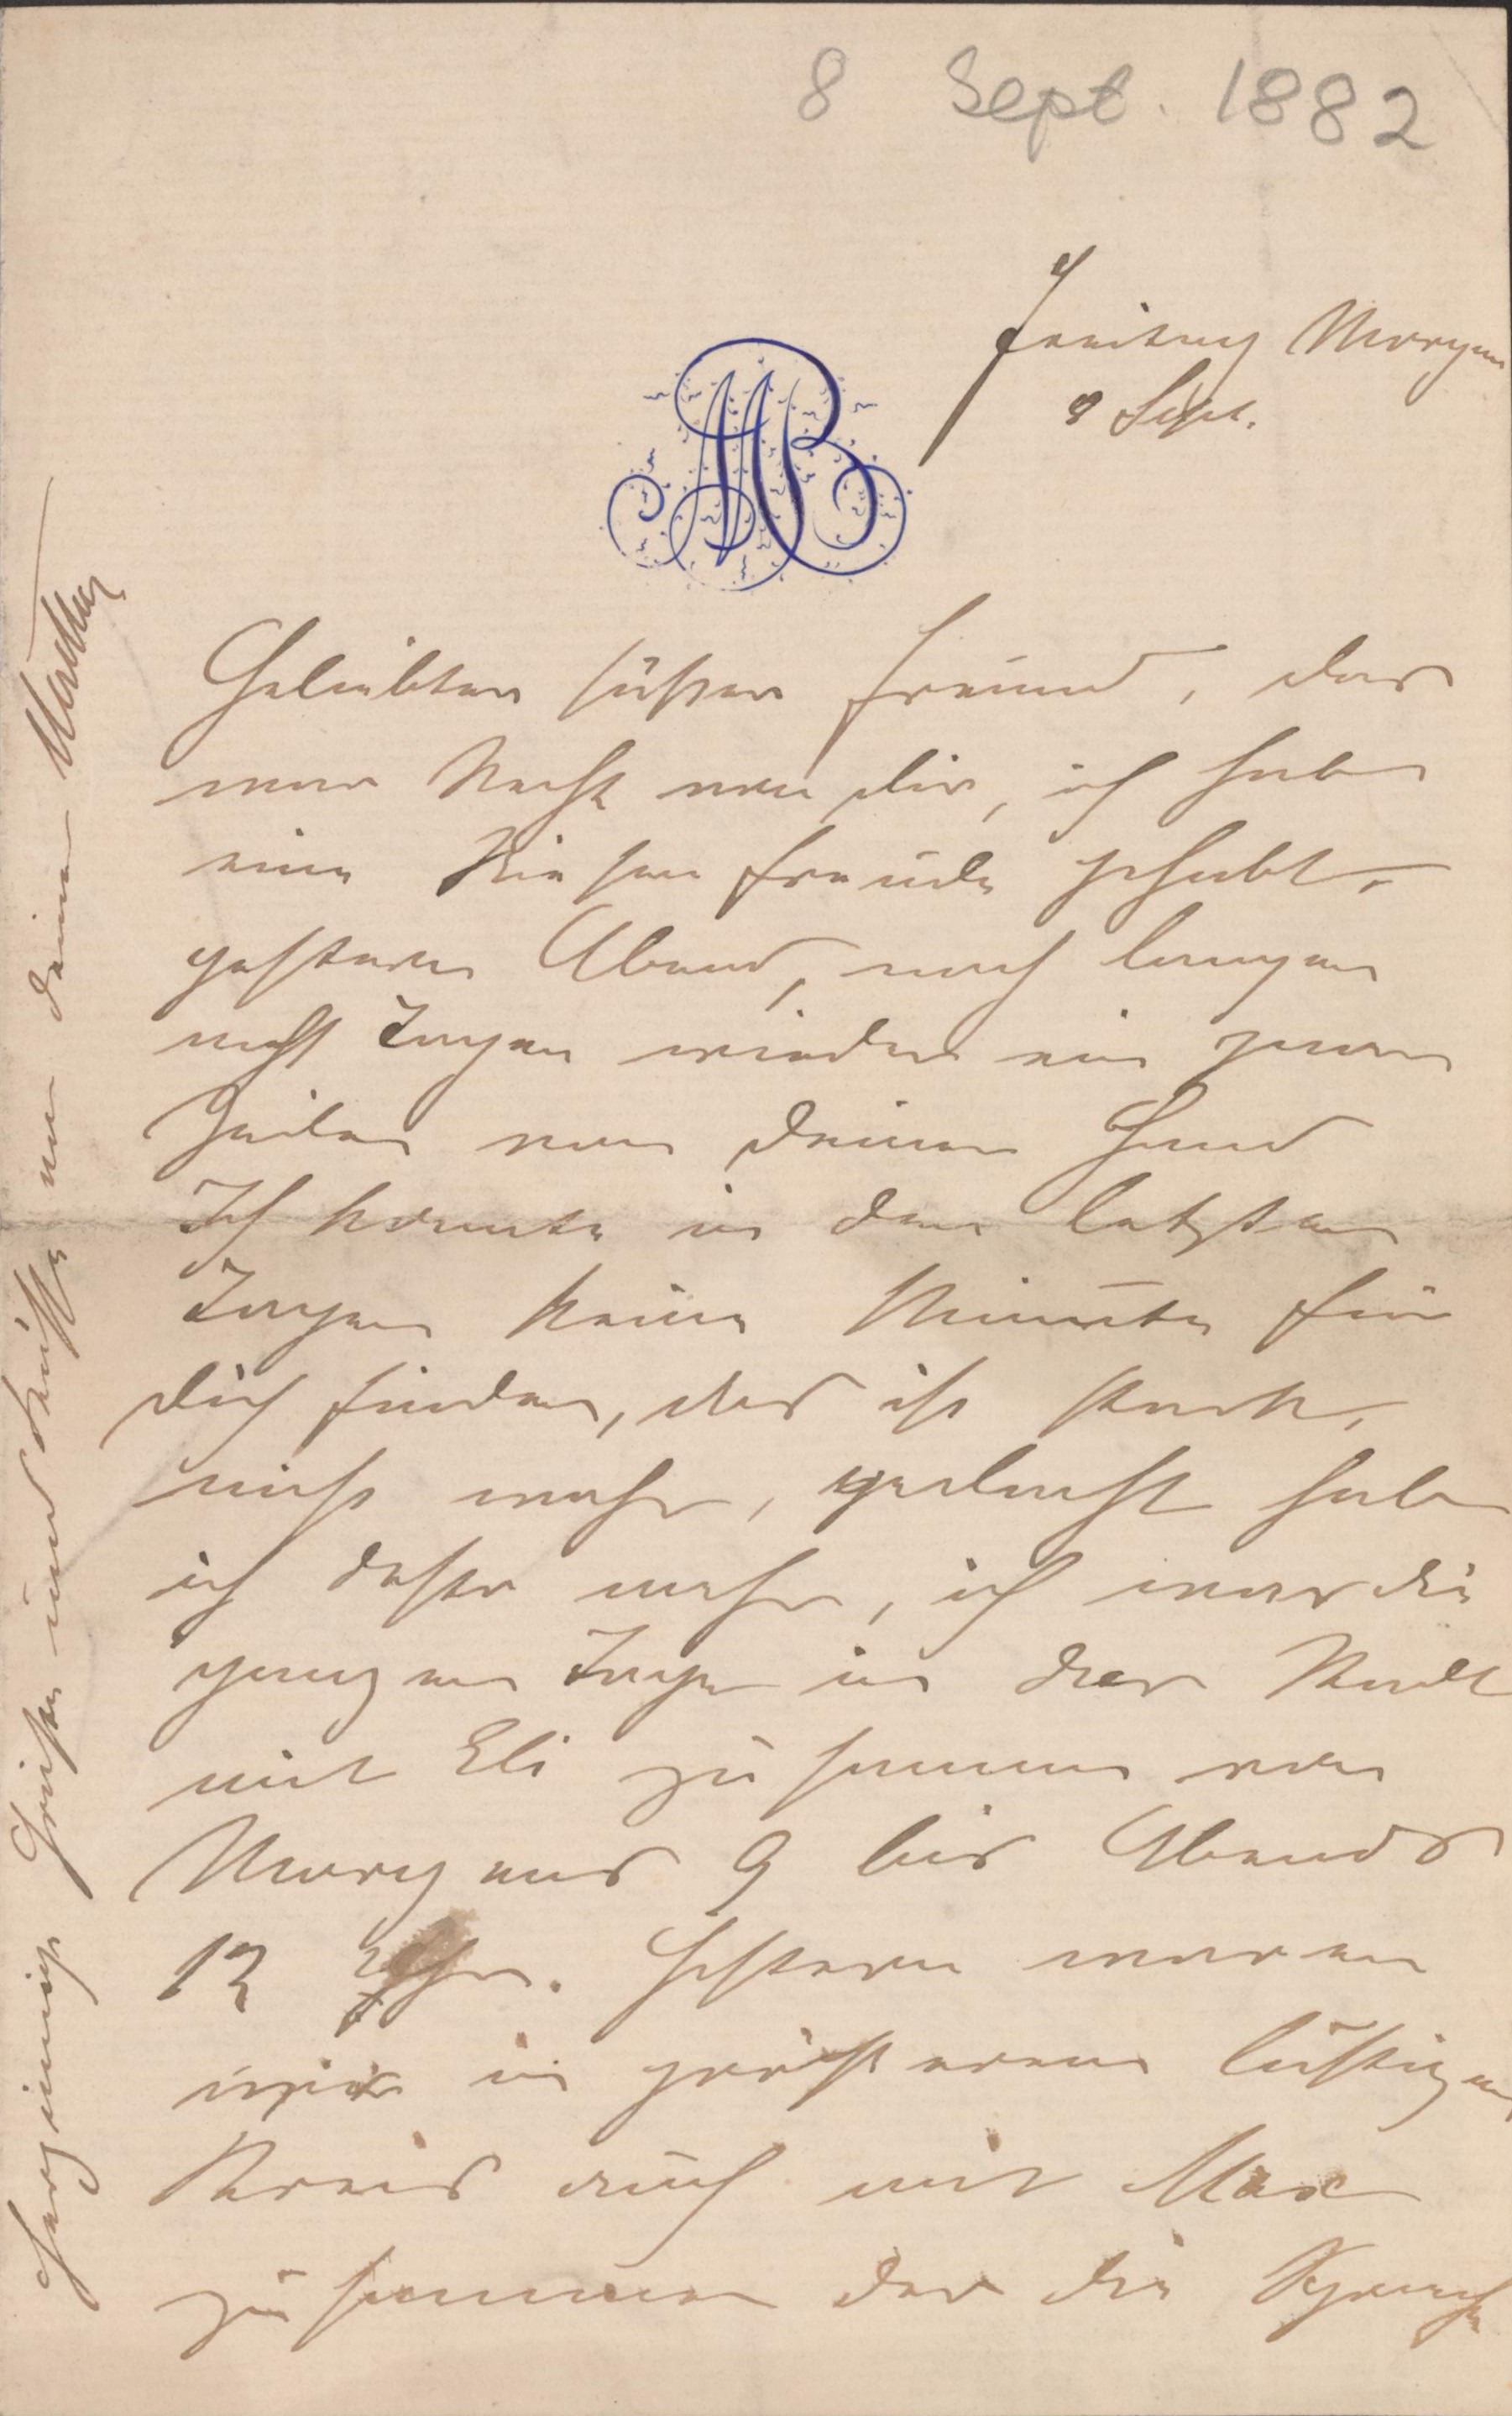 8 Sept. 1882
Freitag Morgen
8 Sept.
MB
Geliebter süßer Freund, das
war Recht von dir, ich habe
eine Riesen freude gehabt,
gestern Abend, nach langen
acht Tagen wieder ein paar
Zeilen von Deiner Hand
Ich konnte in den letzten
Tagen keine Minute für
dich finden, das ist stark,
nicht wahr, gedacht habe
ich desto mehr, ich war die
ganzen Tage in der Stadt
mit Eli zusammen von
Morgens 9 bis Abends
12 Uhr. Gestern waren
wir in größerem lustigen
Kreis auch mit Max
zusammen der die Sprache
Herzinnige Grüße und Küße von deiner Martha